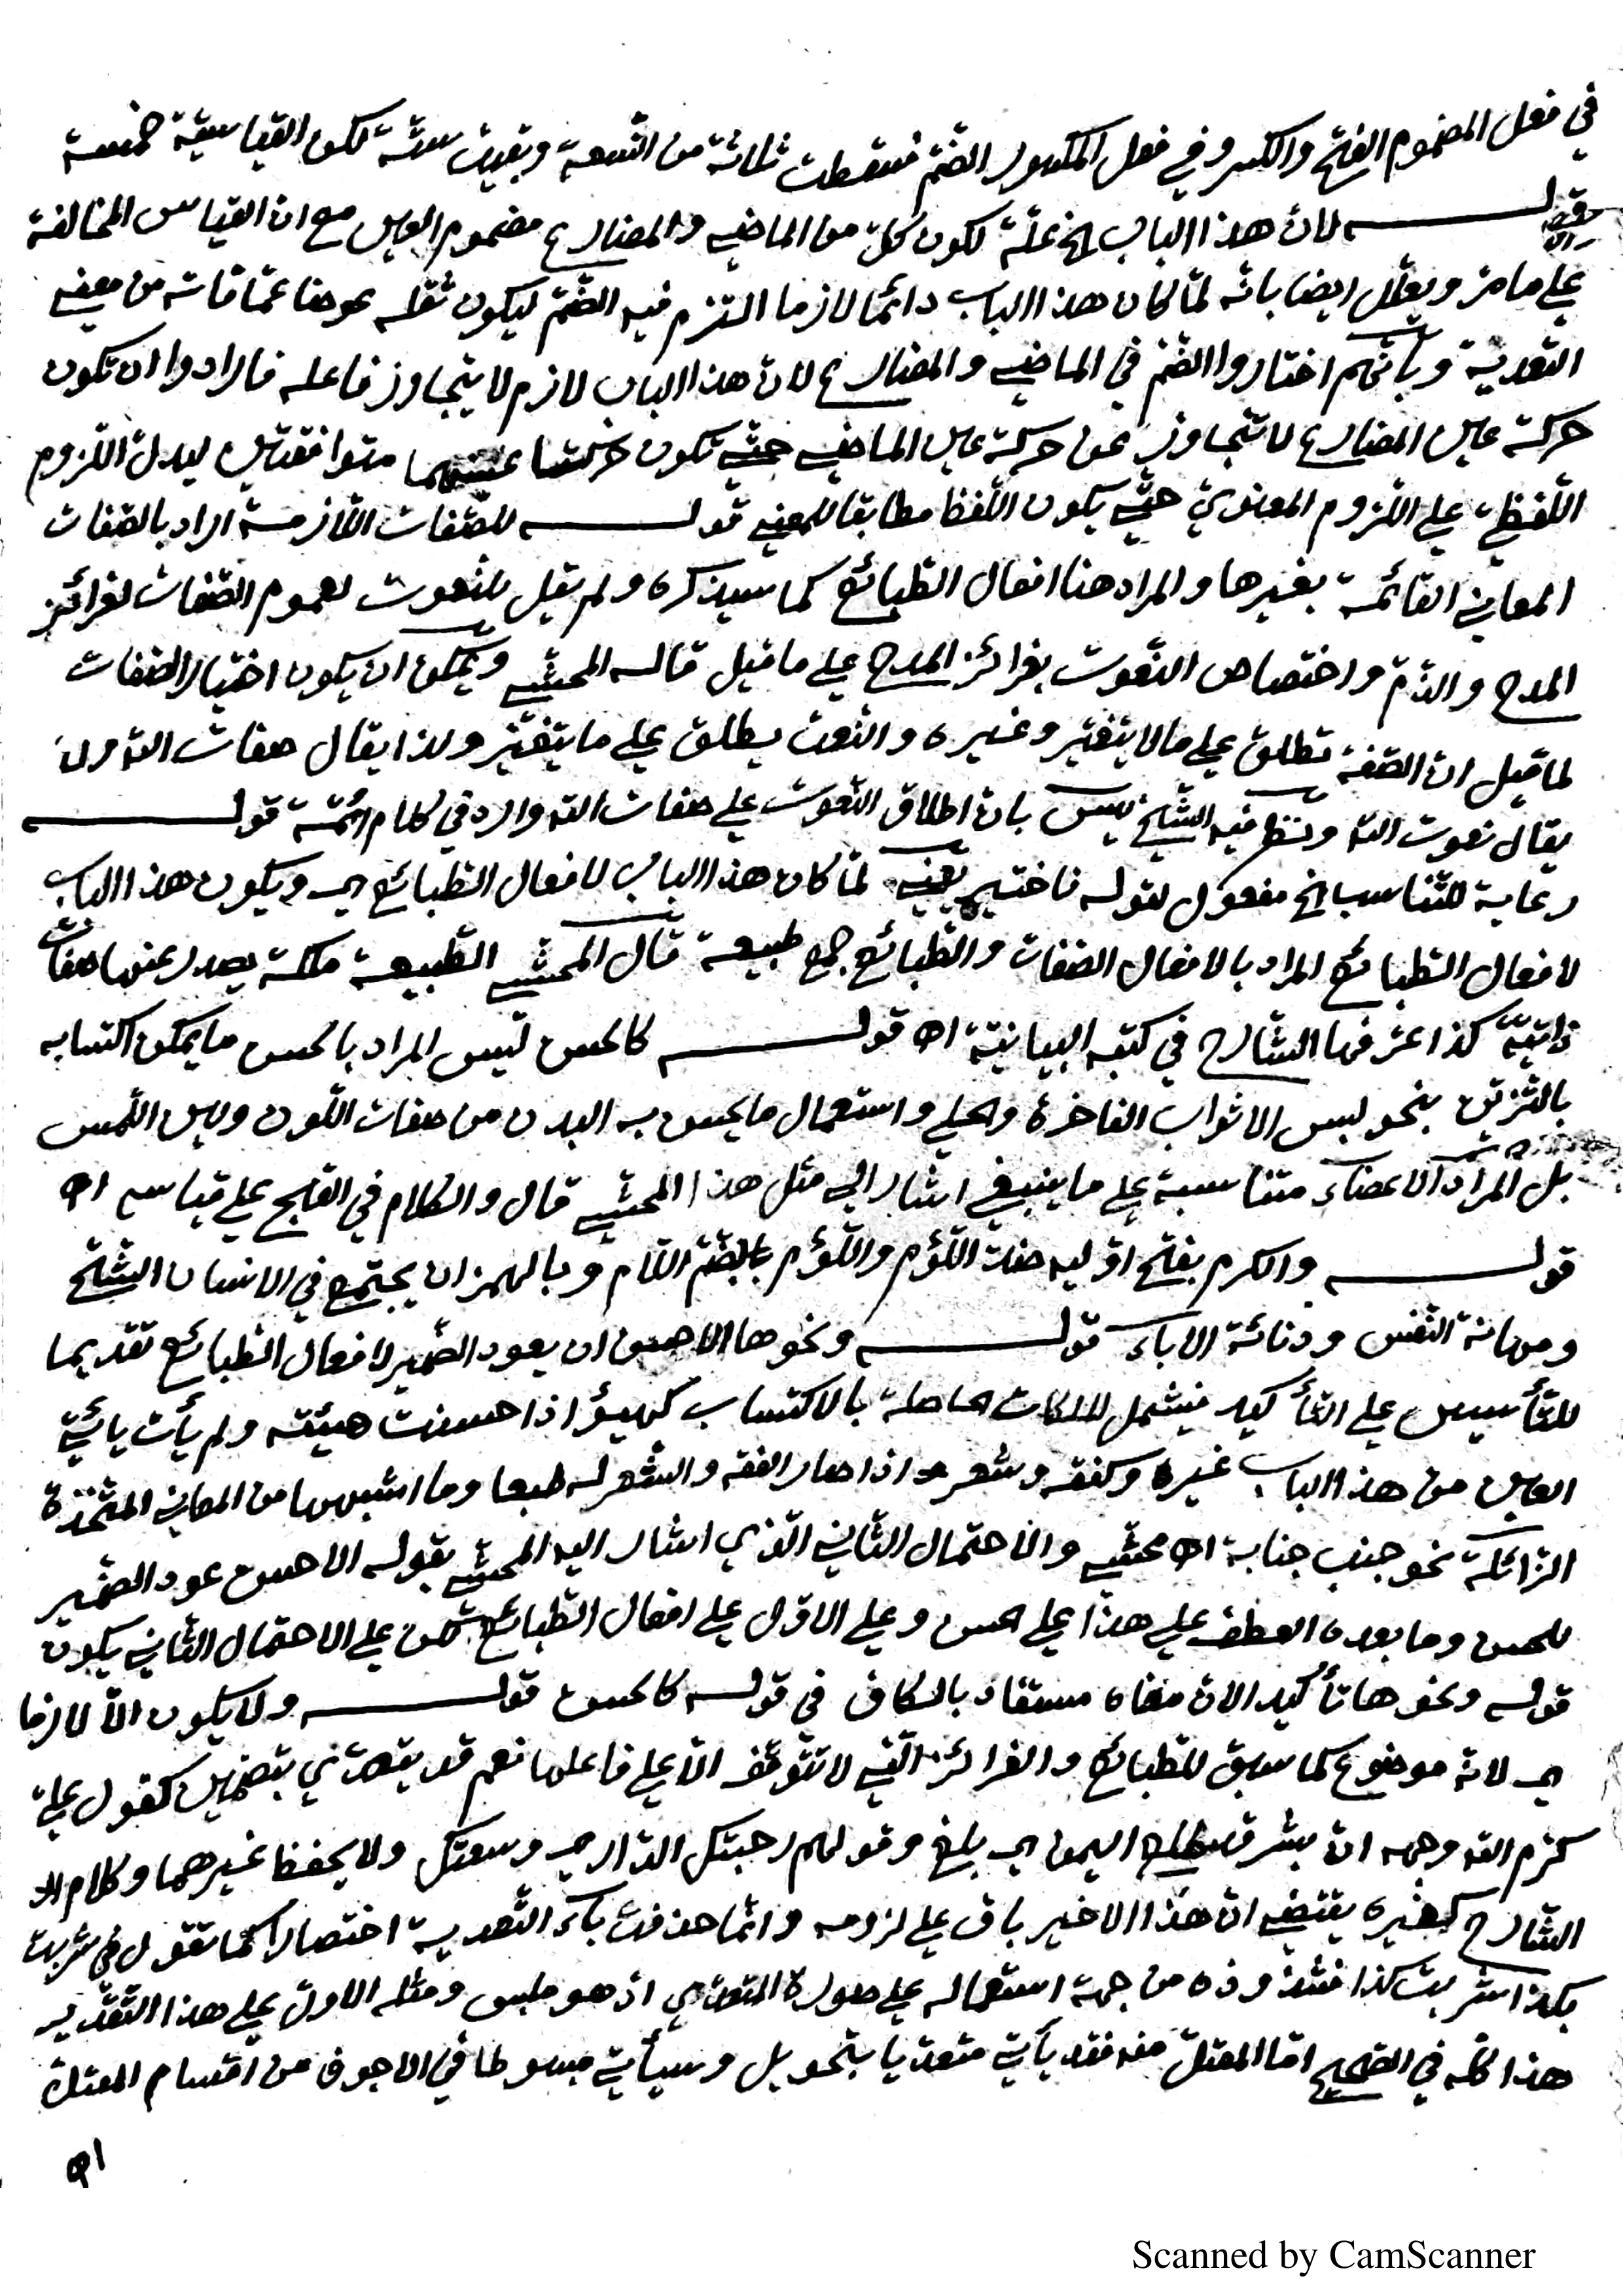 في فعل المضموم الفتح والكسر وفي فعل المكسور الضم فسقطت ثلاثة من التسعة وبقيت ستة لكن القياسية خمسة
قولـه لان هذا الباب الخ علة لكون كل من الماضي والمضارع مضموم العين مع ان القياس المخالفة
على ما مر ويعلل ايضا بانه لمّا كان هذا الباب دائما لازما التزم فيه الضم ليكون ثقله عوضا عمّا فاته من معنى
التعدية وبأنّهم اختاروا الضم في الماضي والمضارع لان هذا الباب لازم لا يتجاوز فاعله فارادوا ان تكون
حركة عين المضارع لا تتجاوز عن حركة عين الماضي حتّى تكون حركتا عينيهما متوافقتين ليدل اللزوم
اللّفظي على اللزوم المعنوي حتّى يكون اللّفظ مطابقا للمعنى قولـه للصّفات اللّازمة اراد بالصّفات
المعاني القائمة بغيرها والمراد هنا افعال الطبائع كما سيذكره ولم يقل للنعوت لعموم الصّفات لغرائز
المدح والذمّ واختصاص النّعوت بغرائز المدح على ما قيل قاله المحشّي ويمكن ان يكون اختيار الصّفات
لما قيل ان الصّفة تطلق على ما لا يتغيّر وغيره والنّعت يطلق على ما يتغيّر ولذا يقال صفات الله ولا
يقال نعوت الله ونظر فيه الشّيخ يس بان اطلاق النّعوت على صفات الله وارد في كلام ائمّة قولـه
رعاية للتّناسب الخ مفعول لقوله فاختير يعني لمّا كان هذا الباب لافعال الطّبائع اي ويكون هذا الباب
لافعال الطبائع المراد بالافعال الصّفات والطّبائع جمع طبيعة قال المحشّي الطّبيعة ملكة يصدر عنها صفات
ذاتيّة كذا عرّفها الشّارح في كتبه البيانيّة اه قولـه كالحسن ليس المراد بالحسن ما يمكن اكتسابه
بالتّزيّن بنحو لبس الاثواب الفاخرة والحلي واستعمال ما يحسن به البدن من صفات اللّون ولين اللّمس
بل المراد الاعضاء متناسبة على ما ينبغي اشار الى مثل هذا المحشّي قال والكلام في القبح على قياسه اه
قولـه والكرم بفتح اوّليه ضدّ اللّؤم واللّؤم بالضّمّ اللّام وبالهمز ان يجتمع في الانسان الشّحّ
ومهانة النّفس ودنائة الآباء قولـه ونحوها الاحسن ان يعود الضّمير لافعال الطّبائع تقديما
للتّأسيس على التّأكيد فيشمل الملكات الحاصلة بالاكتساب كهيؤ اذا حسنت هيئته ولم يأت يائيّ
العين من هذا الباب غيره وكفقه وشعر اذا صار الفقه والشّعر له طبعا وما اشبهها من المعاني المتّخذة
الزائلة نحو جنب جنابة اه محشّي والاحتمال الثّاني الّذي اشار اليه المحشّي بقوله الاحسن عود الضّمير
للحسن وما بعده العطف على هذا على الحسن وعلى الاوّل على افعال الطّبائع لكن على الاحتمال الثّاني يكون
قوله ونحوها تأكيد الانّ معناه مستفاد بالكاف في قولـه كالحسن قولـه ولا يكون الّا لازما
اي لانه موضوع كما سبق للطّبائع والغرائز الّتي لا تتوقّف الّا على فاعلها نعم قد يتعدّي بتضمين كقول عليّ
كرّم الله وجهه انّ بشرا قد طلع اليمن اي بلغ وقولهم رحبتكل الدّار اي وسعتكل ولا يحفظ غيرهما وكلام
الشّارح كغيره يقتضي انّ هذا الاخير باق على لزومه وانّما حذفت باء التّعدية اختصارا كما تقول في شربت
بكذا شربت كذا فشذوذه من جهة استعماله على صورة المتعدّي اذ هو ملبس ومثله الاوّل على هذا التّقدير
هذا كلّه في الصّحيح امّا المعتلّ منه فقد يأتي متعدّيا بتحويل وسيأتي مبسوطا في الاجوف من اقسام المعتلّ
اه
Scanned by CamScanner